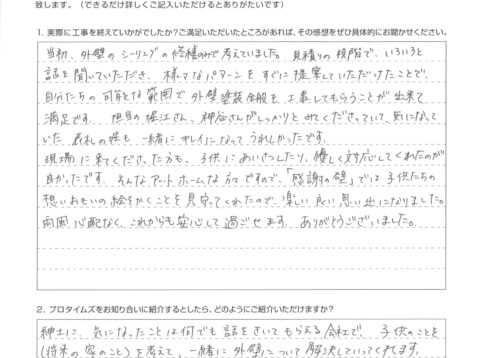 致します。（できるだけ詳しくご記入いただけるとありがたいです）
1. 実際に工事を終えていかがでしたか？ご満足いただいたところがあれば、その感想をぜひ具体的にお聞かせください。
当初、外壁のシーリングの修繕のみで考えていました。見積りの段階で、いろいろと
話を聞いていただき、様々なパターンをすぐに提案していただけたことで、
自分たちの可能な範囲で外壁塗装全般を工事してもらうことが出来て
満足です。担当の堀江さん、神谷さんがしっかりとみてくださっていて、気になって
いた表札の塀も一緒にキレイになってうれしかったです。
現場に来てくださった方も、子供にあいさつしたり、優しく対応してくれたのが
良かったです。そんなアットホームな方々ですので、「感謝の壁」では子供たちの
想いおもいの絵をかくことを見守ってくれたので、楽しい良い思い出になりました。
雨風心配なく、これからも安心して過ごせます。ありがとうございました。
2. プロタイムズをお知り合いに紹介するとしたら、どのようにご紹介いただけますか？
紳士に、気になったことは何でも話をきいてもらえる会社で、子供のことを
(将来の家のこと)を考えて、一緒に外壁について解決していってくれます。